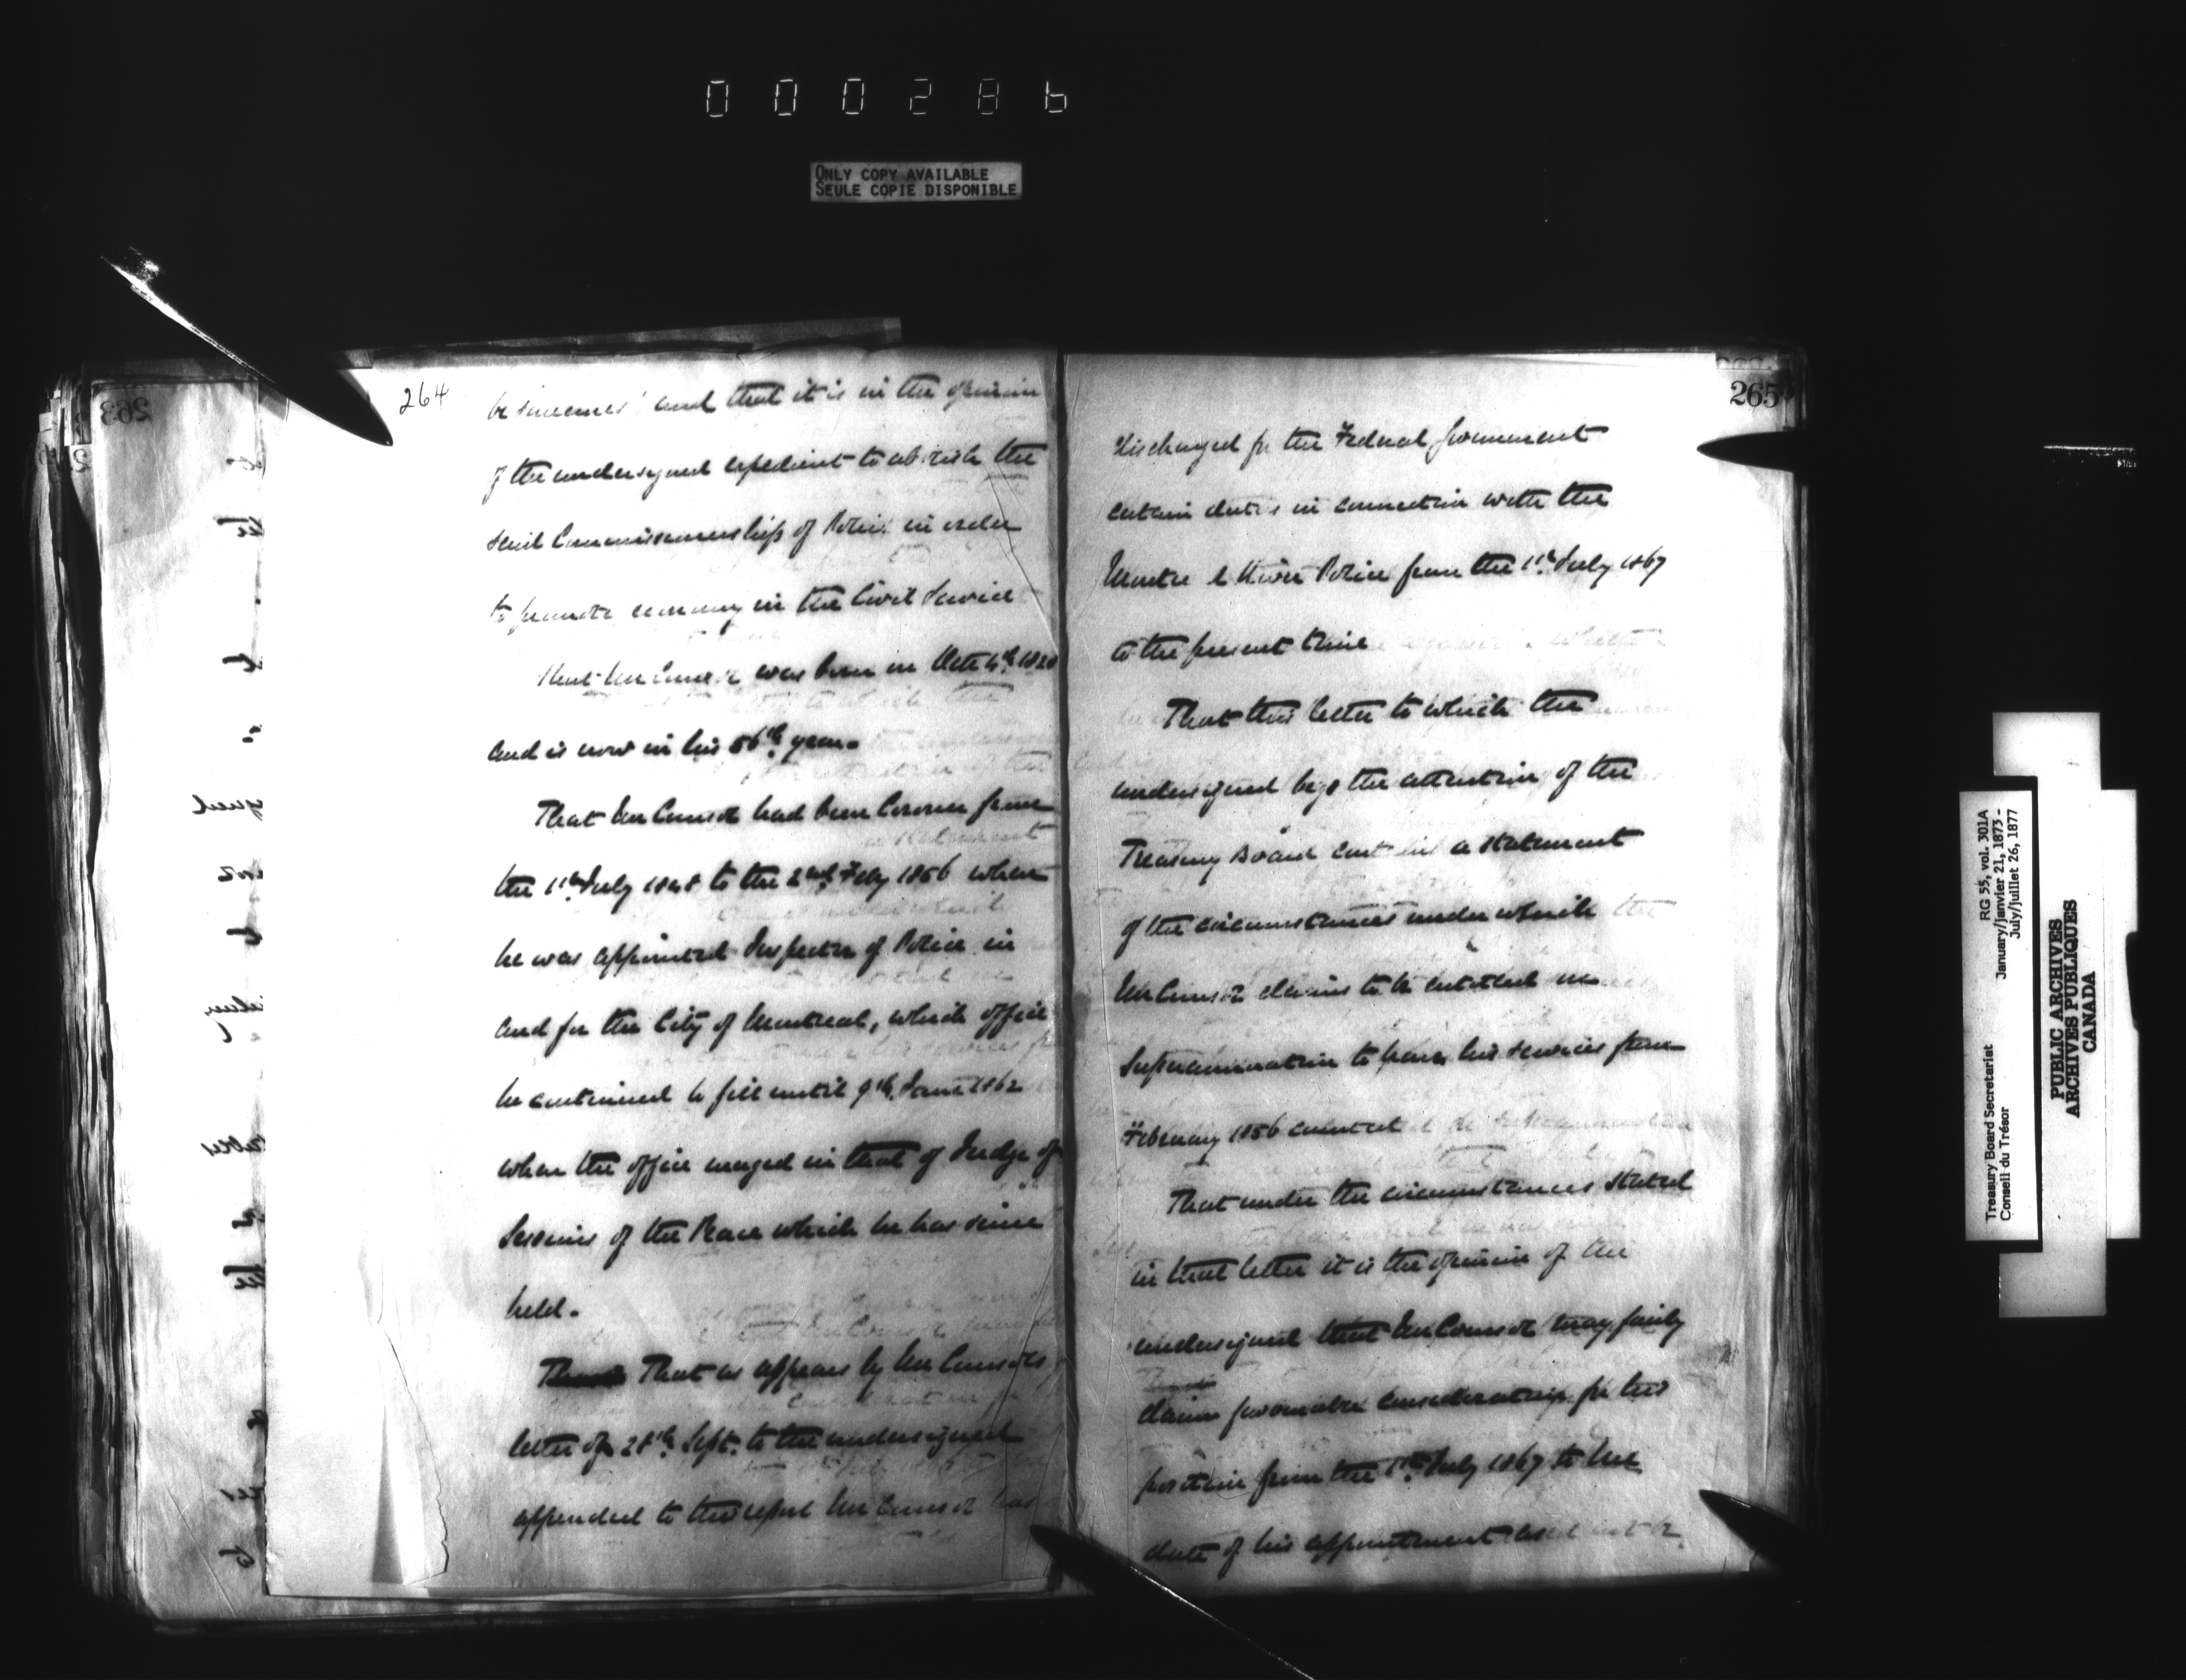 000286
ONLY COPY AVAILABLE
SEULE COPIE DISPONIBLE
264
and that it is in the opinion
of the undersigned expedient to abolish the
said Commissionership of Police in order
to promote economy in the Civil Service
That Mr Coursol was born in Octr 4th 1820
and is now in his 56th year.
That Mr Coursol had been Coroner from
the 1st July 1848 to the 2nd Feby 1856 when
he was appointed Inspector of Police in
and for the City of Montreal, which office
he continued to fill until 9th June 1862
when the office merged in that of Judge of
Sessions of the Peace which he has since
held.
That as appears by Mr Coursol's
letter of 28th Sept. to the undersigned
appended to this report Mr Coursol has
265
discharged for the Federal Government
certain duties in connection with the
Water & River Police from the 1st July 1867
to the present time
That this letter to which the
undersigned begs the attention of the
Treasury Board contains a statement
of the circumstances under which the
Mr Coursol claims to be entitled on
Superannuation to have his services from
February 1856 counted
That under the circumstances stated
in that letter it is the opinion of the
undersigned that Mr Coursol may fairly
claim favourable consideration for his
position from the 1st July 1867 to the
date of his appointment
Treasury Board Secretariat
Conseil du Trésor
RG 55, vol. 301A
January/janvier 21, 1873 -
July/juillet 26, 1877
PUBLIC ARCHIVES
ARCHIVES PUBLIQUES
CANADA